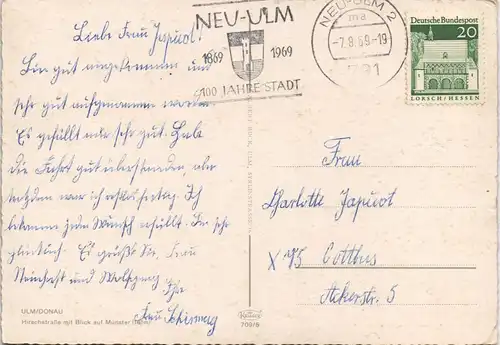 Liebe Frau Japicot!
Bin gut angekommen und
sehr gut aufgenommen worden.
Es gefällt mir sehr gut. Habe
die Fahrt gut überstanden, aber
trotzdem war ich
bekomme jeden Wunsch erfüllt. Bin sehr
glücklich. Es grüßt Sie, Frau
Reinhold und Wolfgang Ihre
Frau
ULM/DONAU
Hirschstraße mit Blick auf Münster
NEU-ULM
1869 1969
100 JAHRE STADT
NEU-ULM 2
ma
-7.8.69-19
791
Deutsche Bundespost
20
LORSCH/HESSEN
Frau
Charlotte Japicot
X 75 Cottbus
Ackerstr. 5
709/8